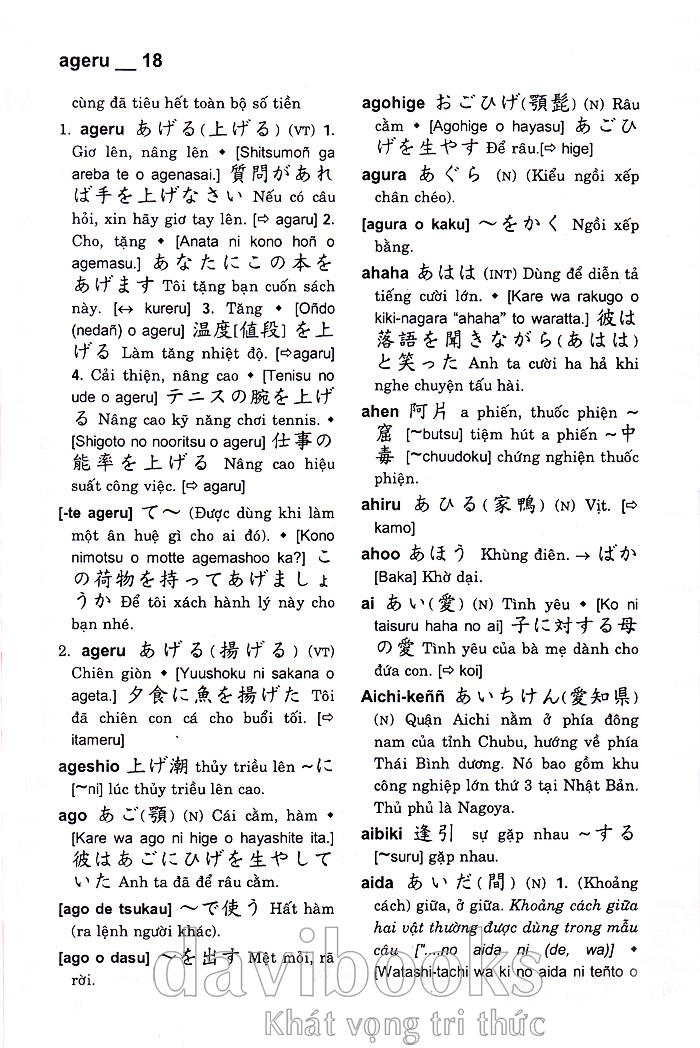 ageru __ 18
cùng đã tiêu hết toàn bộ số tiền
1. ageru あげる(上げる) (VT) 1.
Giơ lên, nâng lên ♦ [Shitsumoñ ga
areba te o agenasai.] 質問があれ
ば手を上げなさい Nếu có câu
hỏi, xin hãy giơ tay lên. [⇨ agaru] 2.
Cho, tặng ♦ [Anata ni kono hoñ o
agemasu.] あなたにこの本を
あげます Tôi tặng bạn cuốn sách
này. [↔ kureru] 3. Tăng ♦ [Oñdo
(nedañ) o ageru] 温度[値段] を上
げる Làm tăng nhiệt độ. [⇨agaru]
4. Cải thiện, nâng cao ♦ [Tenisu no
ude o ageru] テニスの腕を上げ
る Nâng cao kỹ năng chơi tennis. ♦
[Shigoto no nooritsu o ageru] 仕事の
能率を上げる Nâng cao hiệu
suất công việc. [⇨ agaru]
[-te ageru] て〜 (Được dùng khi làm
một ân huệ gì cho ai đó). ♦ [Kono
nimotsu o motte agemashoo ka?] こ
の荷物を持ってあげましょ
うか Để tôi xách hành lý này cho
bạn nhé.
2. ageru あげる(揚げる) (VT)
Chiên giòn ♦ [Yuushoku ni sakana o
ageta.] 夕食に魚を揚げた Tôi
đã chiên con cá cho buổi tối. [⇨
itameru]
ageshio 上げ潮 thủy triều lên 〜に
[~ni] lúc thủy triều lên cao.
ago あご(顎) (N) Cái cằm, hàm ♦
[Kare wa ago ni hige o hayashite ita.]
彼はあごにひげを生やして
いた Anh ta đã để râu cằm.
[ago de tsukau] 〜で使う Hất hàm
(ra lệnh người khác).
[ago o dasu] 〜を出す Mệt mỏi, rã
rời.
agohige おごひげ(顎髭) (N) Râu
cằm ♦ [Agohige o hayasu] あごひ
げを生やす Để râu.[⇨ hige]
agura あぐら (N) (Kiểu ngồi xếp
chân chéo).
[agura o kaku] 〜をかく Ngồi xếp
bằng.
ahaha あはは (INT) Dùng để diễn tả
tiếng cười lớn. ♦ [Kare wa rakugo o
kiki-nagara “ahaha” to waratta.] 彼は
落語を聞きながら(あはは)
と笑った Anh ta cười ha hả khi
nghe chuyện tấu hài.
ahen 阿片 a phiến, thuốc phiện ~
窟 [~butsu] tiệm hút a phiến ~中
毒 [~chuudoku] chứng nghiện thuốc
phiện.
ahiru あひる(家鴨) (N) Vịt. [⇨
kamo]
ahoo あほう Khùng điên. → ばか
[Baka] Khờ dại.
ai あい(愛) (N) Tình yêu ♦ [Ko ni
taisuru haha no ai] 子に対する母
の愛 Tình yêu của bà mẹ dành cho
đứa con. [⇨ koi]
Aichi-keññ あいちけん(愛知県)
(N) Quận Aichi nằm ở phía đông
nam của tỉnh Chubu, hướng về phía
Thái Bình dương. Nó bao gồm khu
công nghiệp lớn thứ 3 tại Nhật Bản.
Thủ phủ là Nagoya.
aibiki 逢引 sự gặp nhau 〜する
[~suru] gặp nhau.
aida あいだ(間) (N) 1. (Khoảng
cách) giữa, ở giữa. Khoảng cách giữa
hai vật thường được dùng trong mẫu
câu ["....no aida ni (de, wa)] ♦
[Watashi-tachi wa ki no aida ni teñto o
davibooks
Khát vọng tri thức